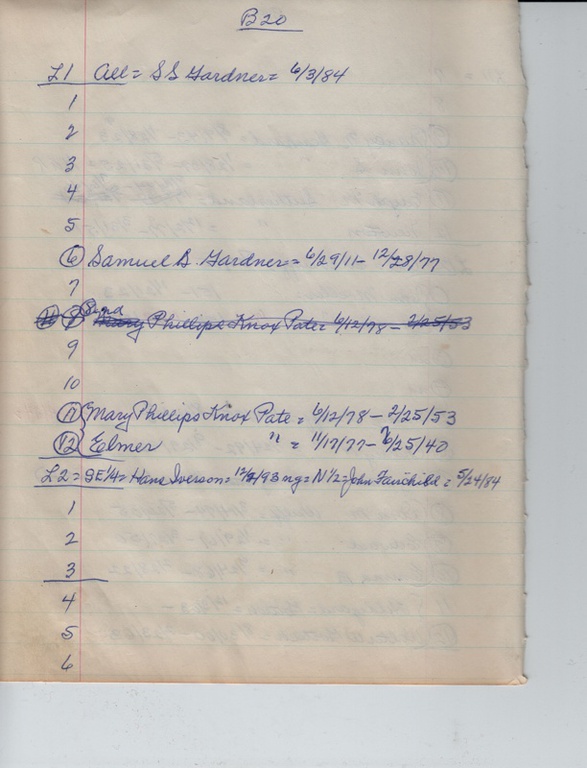 B20
L1 All = S S Gardner = 6/3/84
1
2
3
4
5
6 Samuel S. Gardner = 6/29/11 - 12/28/77
7
Mary Phillips Knox Pate = 6/12/78 - 2/25/53
9
10
11 Mary Phillips Knox Pate = 6/12/78 - 2/25/53
12 Elmer " = 11/17/77 - 6/25/40
L2 = SE 1/4 = Hans Iverson = 12/2/93 mg = N 1/2 = John Fairchild = 5/24/84
1
2
3
4
5
6